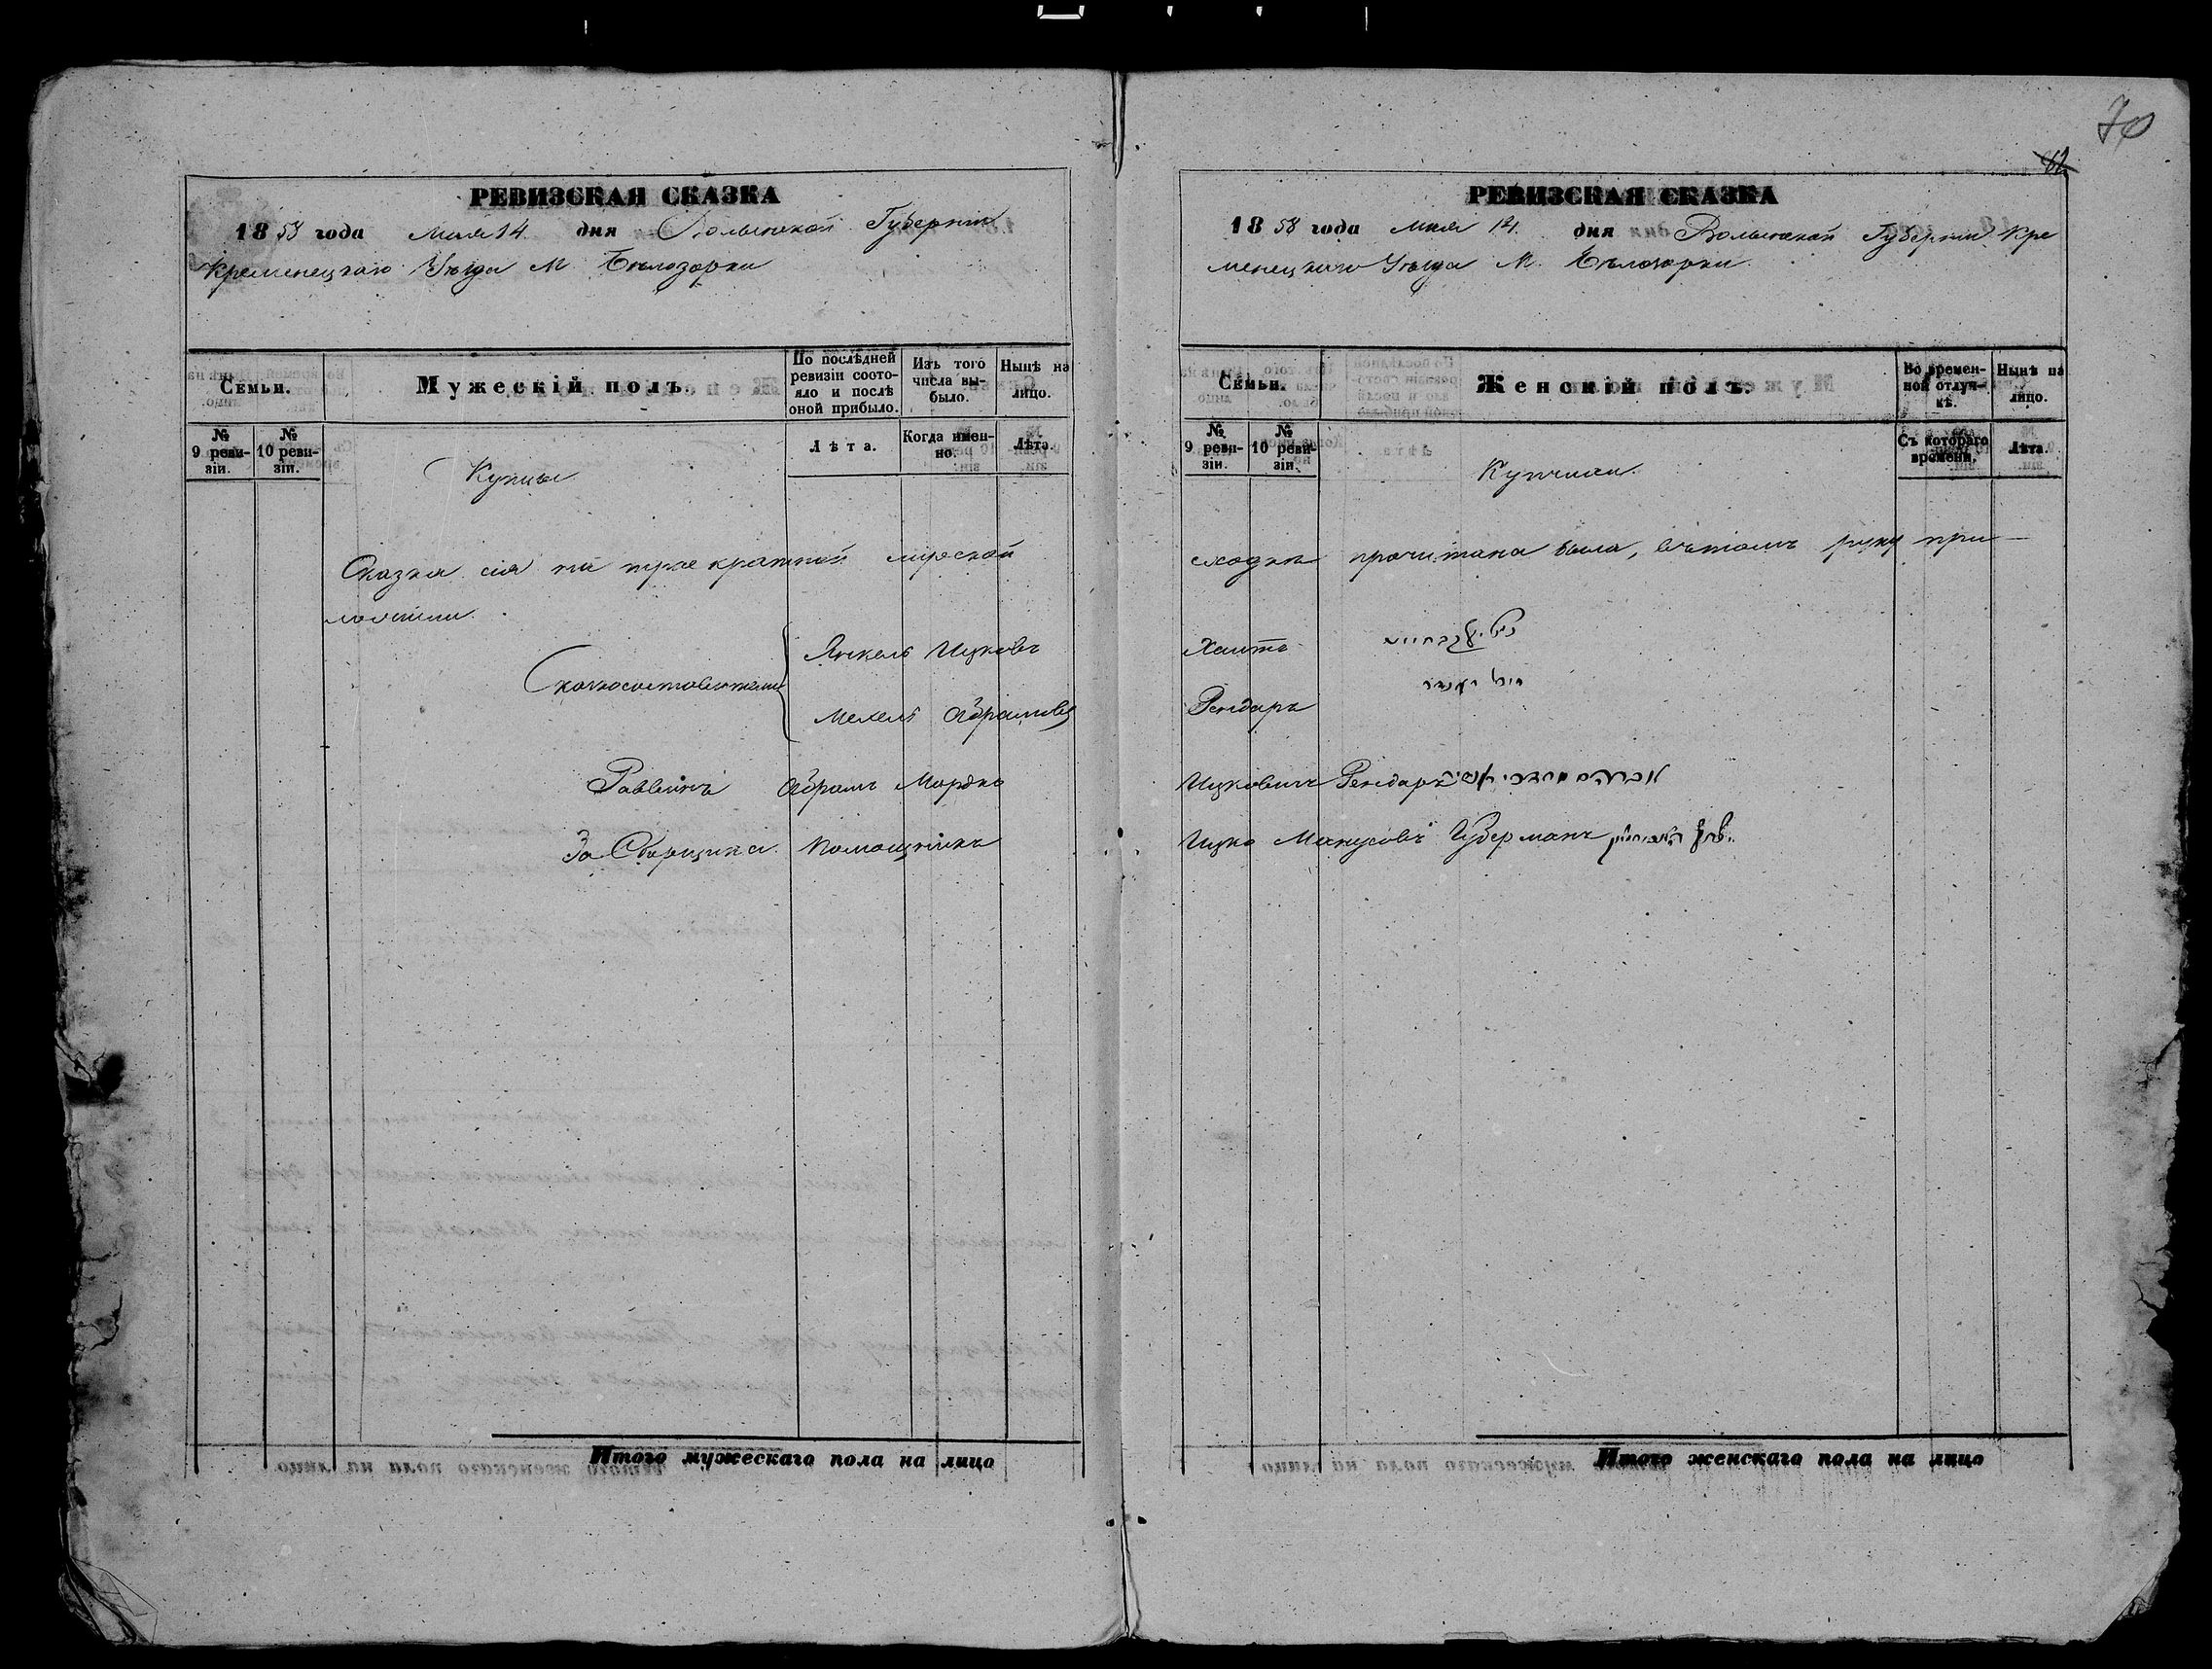 70
82
РЕВИЗСКАЯ СКАЗКА
1858 года Мая 14 дня Волынской Губерніи
Кременецкаго Уѣзда М Бѣлозорки
Семьи.
Мужескій полъ.
По послѣдней ревизіи состояло и послѣ оной прибыло.
Изъ того числа выбыло.
Нынѣ на лицо.
№ 9 ревизіи.
№ 10 ревизіи.
Лѣта.
Когда именно.
Лѣта.
Купцы
Сказка сія на трое кратной мірской
ложили.
Сказкосоставители
Янкель Ицковъ
Мехель Абрамовъ
Раввинъ Абрамъ Мордко
За Сборщика Помощникъ
Итого мужескаго пола на лицо
РЕВИЗСКАЯ СКАЗКА
1858 года Мая 14 дня Волынской Губерніи Кре
менецкаго Уѣзда М. Бѣлозорки
Семьи.
Женскій полъ.
Во временной отлучкѣ.
Нынѣ на лицо.
№ 9 ревизіи.
№ 10 ревизіи.
Съ котораго времени.
Лѣта.
Купчихи
сходкѣ прочитана была, вътомъ руку при-
Хаитъ
Рендаръ
Ицковичъ Рендаръ אברהם מרדכי
Ицко Манусовъ Губерманъ
Итого женскаго пола на лицо